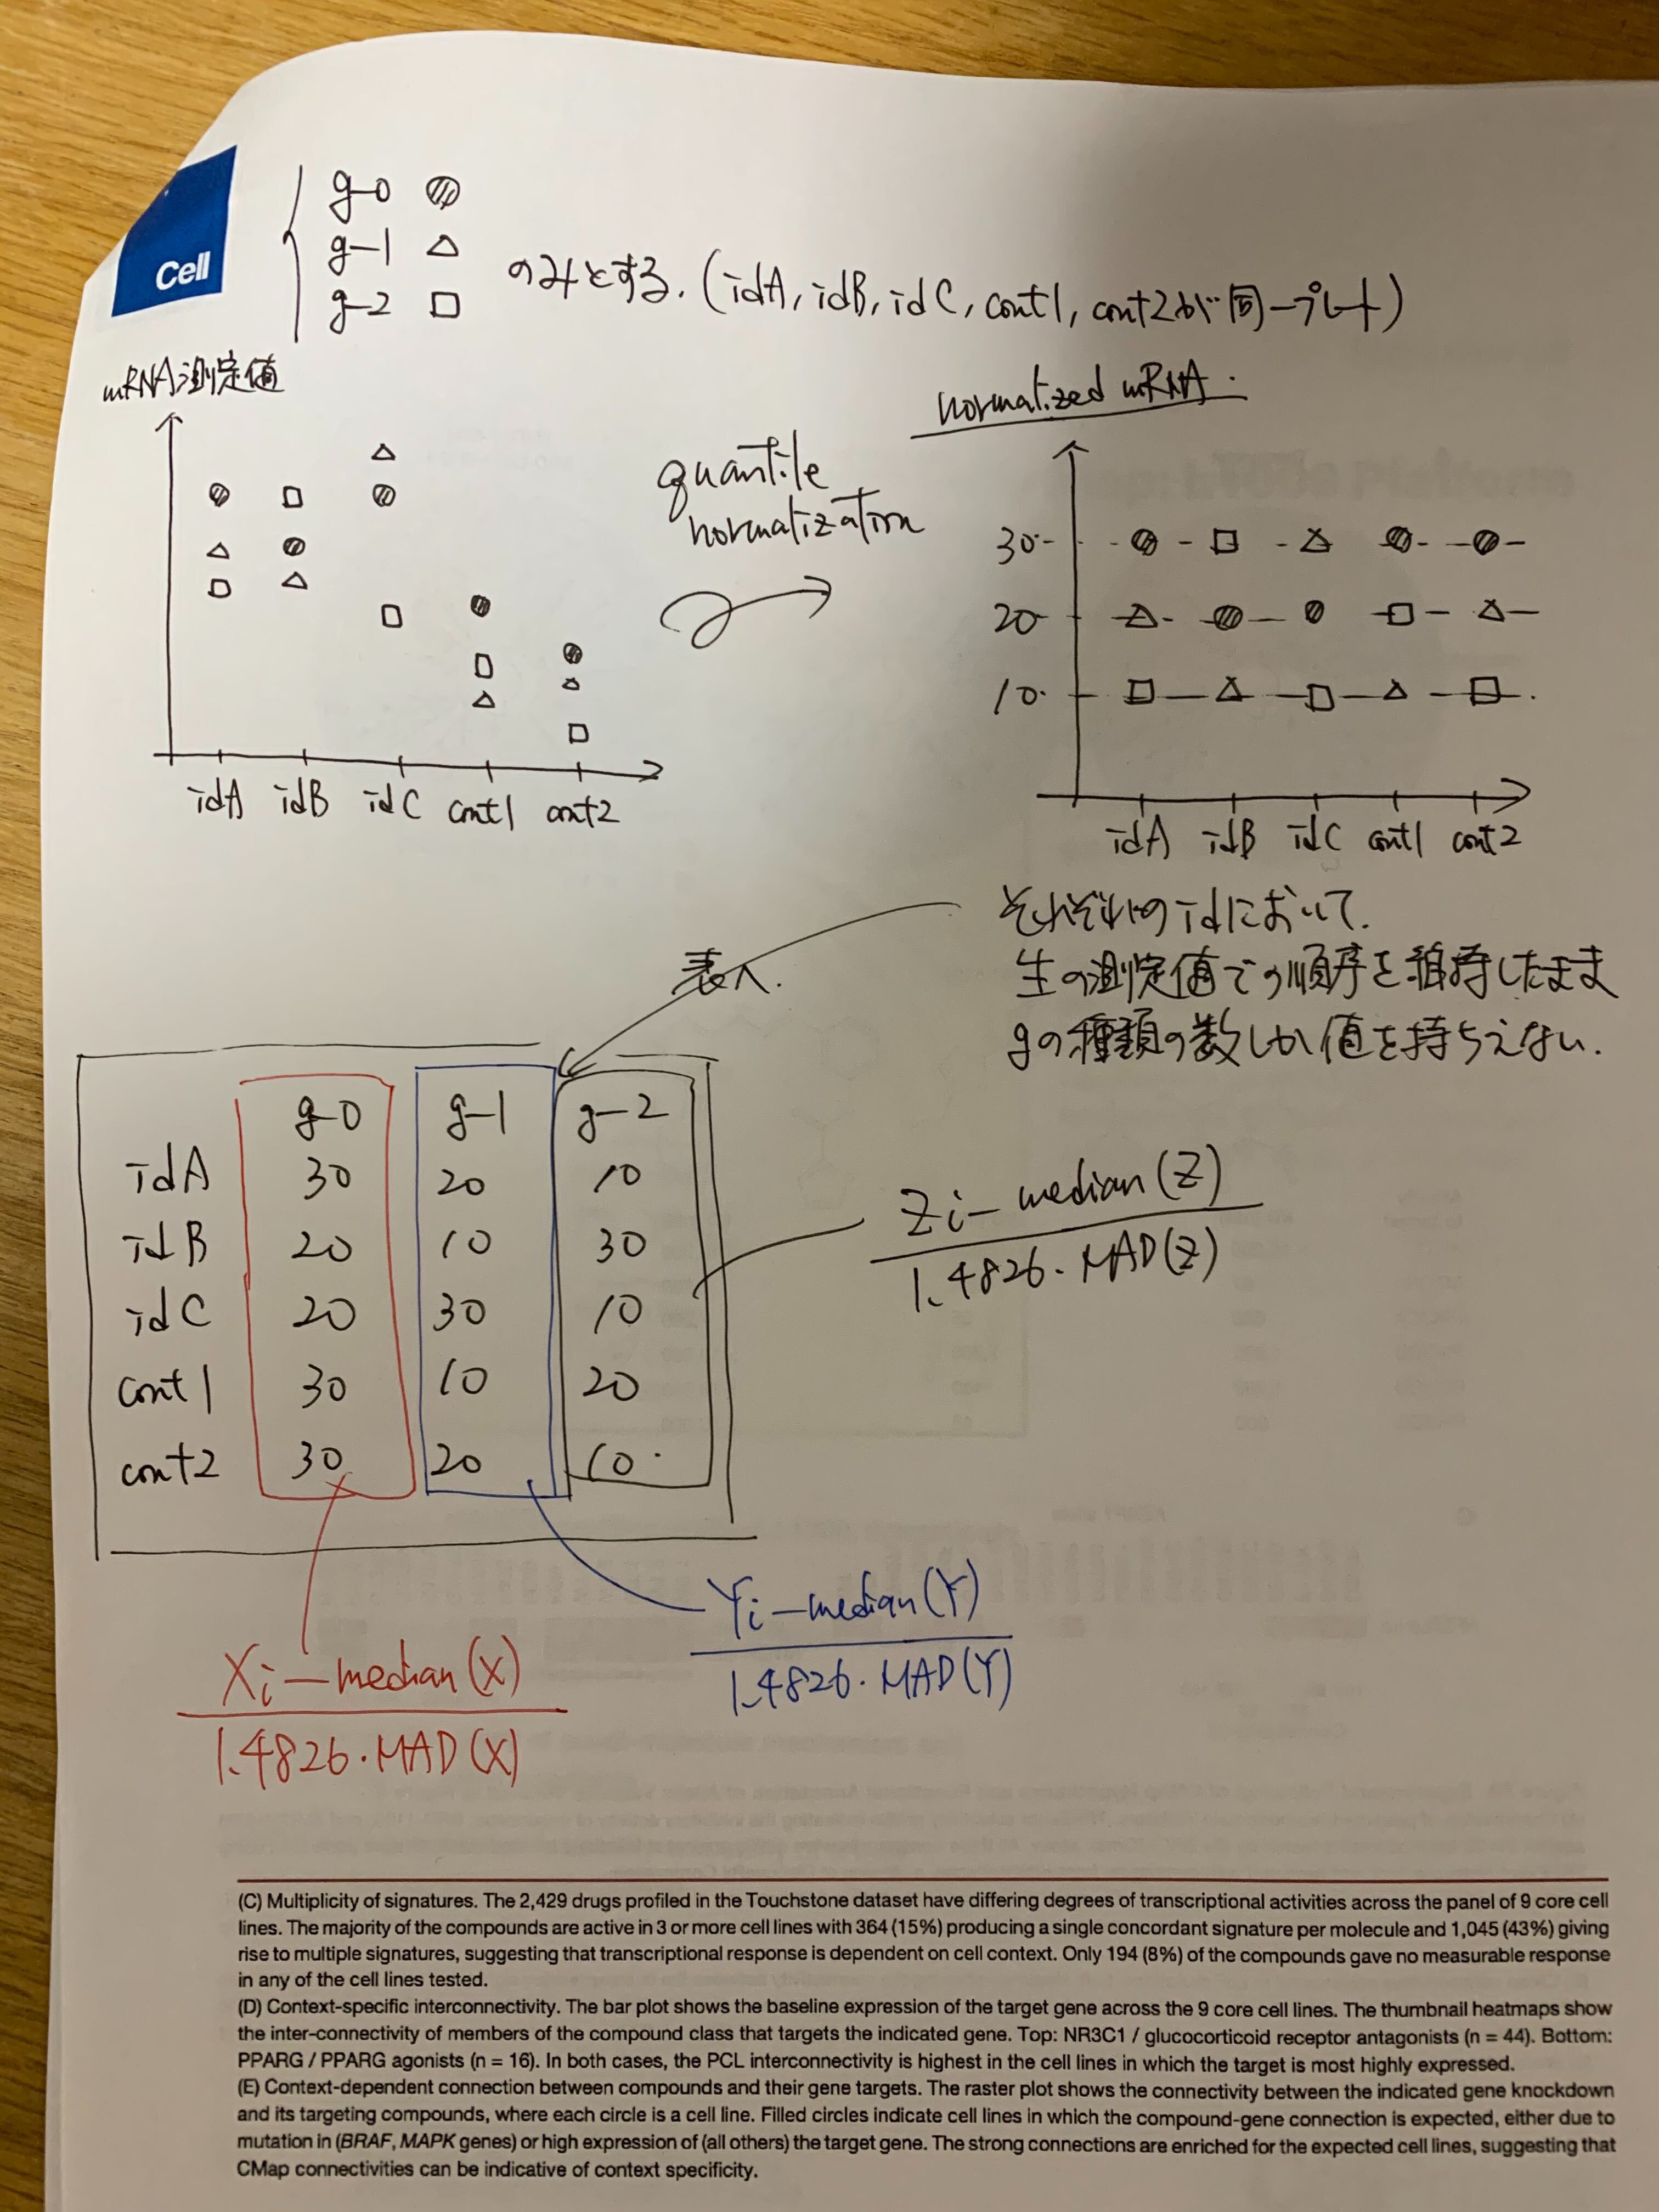 Cell
g-0
g-1
g-2
のみとする. (idA, idB, idC, cont1, cont2が同一プレート)
mRNA測定値
idA idB idC cont1 cont2
quantile
normalization
normalized mRNA.
30
20
10
idA idB idC cont1 cont2
それぞれのidにおいて.
生の測定値での順序を維持したまま
gの種類の数しか値を持ちえない.
表へ.
g-0 g-1 g-2
idA 30 20 10
idB 20 10 30
idC 20 30 10
cont1 30 10 20
cont2 30 20 10
Zi-median(Z)
1.4826・MAD(Z)
Yi-median(Y)
1.4826・MAD(Y)
Xi-median(X)
1.4826・MAD(X)
(C) Multiplicity of signatures. The 2,429 drugs profiled in the Touchstone dataset have differing degrees of transcriptional activities across the panel of 9 core cell
lines. The majority of the compounds are active in 3 or more cell lines with 364 (15%) producing a single concordant signature per molecule and 1,045 (43%) giving
rise to multiple signatures, suggesting that transcriptional response is dependent on cell context. Only 194 (8%) of the compounds gave no measurable response
in any of the cell lines tested.
(D) Context-specific interconnectivity. The bar plot shows the baseline expression of the target gene across the 9 core cell lines. The thumbnail heatmaps show
the inter-connectivity of members of the compound class that targets the indicated gene. Top: NR3C1 / glucocorticoid receptor antagonists (n = 44). Bottom:
PPARG / PPARG agonists (n = 16). In both cases, the PCL interconnectivity is highest in the cell lines in which the target is most highly expressed.
(E) Context-dependent connection between compounds and their gene targets. The raster plot shows the connectivity between the indicated gene knockdown
and its targeting compounds, where each circle is a cell line. Filled circles indicate cell lines in which the compound-gene connection is expected, either due to
mutation in (BRAF, MAPK genes) or high expression of (all others) the target gene. The strong connections are enriched for the expected cell lines, suggesting that
CMap connectivities can be indicative of context specificity.